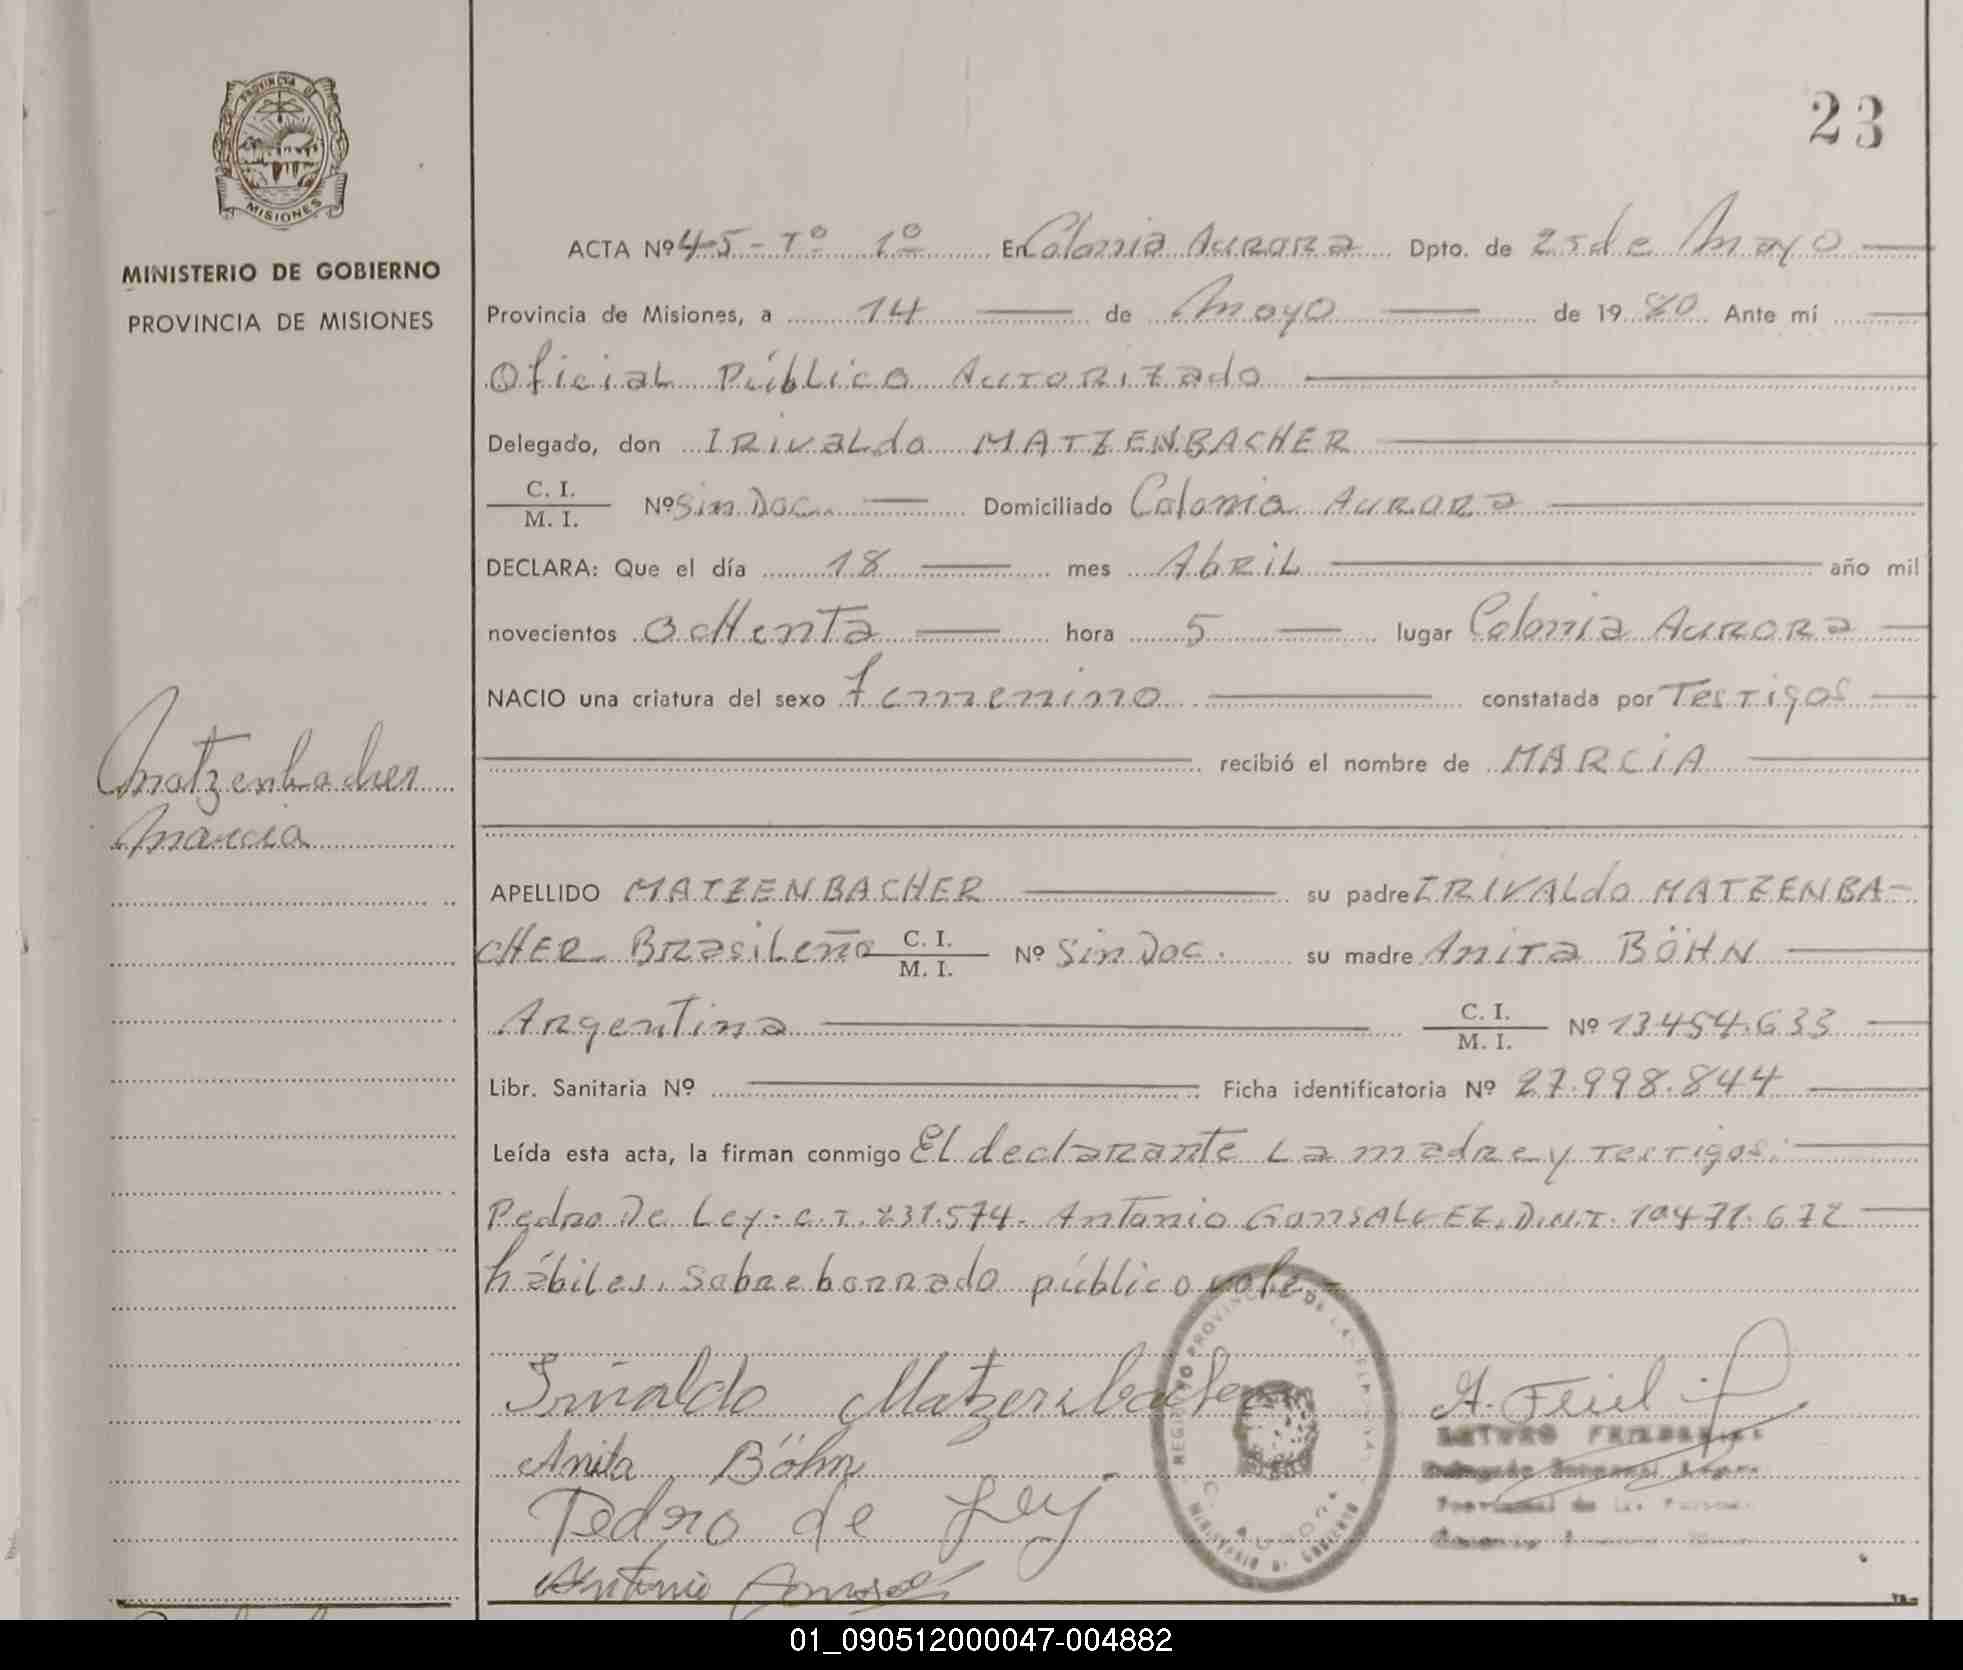 23
PROVINCIA DE
MISIONES
MINISTERIO DE GOBIERNO
PROVINCIA DE MISIONES
Matzenbacher
Marcia
ACTA Nº 45 - Tº 1º En Colonia Aurora Dpto. de 25 de Mayo
Provincia de Misiones, a 14 de Mayo de 1980 Ante mí
Oficial Público Autorizado
Delegado, don IRIVALdo MATZENBACHER
C. I.
M. I. Nº Sin Doc. Domiciliado Colonia Aurora
DECLARA: Que el día 18 mes Abril año mil
novecientos ocHenta hora 5 lugar Colonia Aurora
NACIO una criatura del sexo Femenino constatada por Testigos
recibió el nombre de MARCIA
APELLIDO MATZENBACHER su padre IRIVALdo MATZENBA-
CHER Brasileño C. I.
M. I. Nº Sin Doc. su madre Anita BÖHN
Argentina C. I.
M. I. Nº 13.454.633
Libr. Sanitaria Nº Ficha identificatoria Nº 27.998.844
Leída esta acta, la firman conmigo El declarante La madre y testigos:
Pedro De Ley - C.I. 231.574 - Antonio GonsALvEZ, D.N.I. 10.471.672
hábiles. Sobre borrado público vale -
Irivaldo Matzenbacher
Anita Böhn
Pedro de Ley
Antonio
A. Feiel
REGISTRO PROVINCIAL DE LAS PERSONAS
MINISTERIO DE GOBIERNO
C. AURORA
ARTURO
01_090512000047-004882